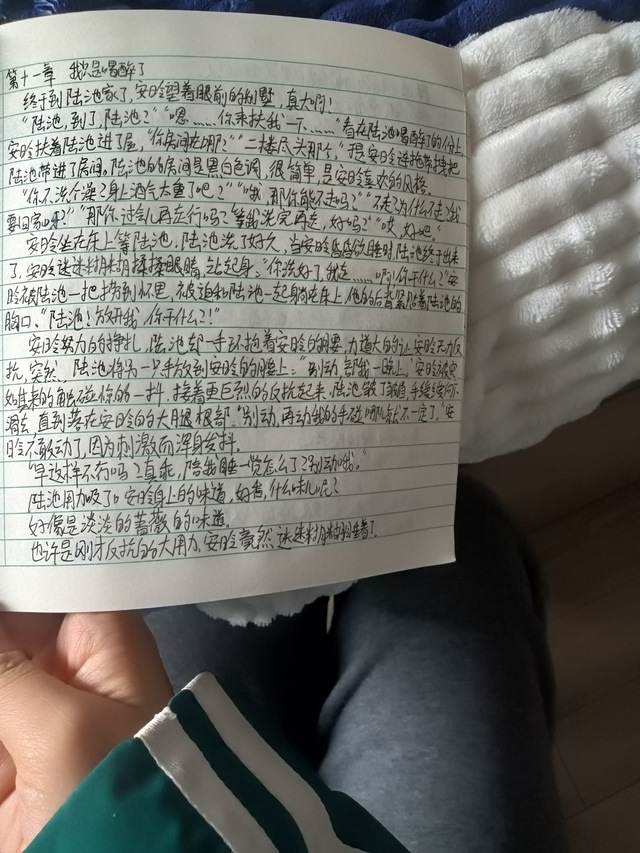 第十一章 我只是喝醉了
终于到陆池家了,安昤望着眼前的别墅,真大啊!
“陆池,到了,陆池?”“嗯……你来扶我一下……”看在陆池喝醉了的份上,
安昤扶着陆池进了屋,“你房间在哪?”“二楼尽头那个。”于是安昤连拖带拽把
陆池带进了房间。陆池的房间是黑白色调,很简单,是安昤喜欢的风格。
“你不洗个澡?身上酒气太重了吧?”“哦,那你能不走吗?”“不走?为什么不走?我
要回家呀?”“那你过会儿再走行吗?等我洗完再走,好吗?”“哎,好吧。”
安昤坐在床上等陆池,陆池洗了好久,当安昤昏昏欲睡时陆池终于出来
了,安昤迷迷糊糊揉揉眼睛,站起身:“你洗好了,我走……啊!你干什么?”安
昤被陆池一把捞到怀里,被迫和陆池一起躺在床上,他的后背紧贴着陆池的
胸口、“陆池!放开我,你干什么?!”
安昤努力的挣扎,陆池却一手环抱着安昤的腰,力道大的让安昤无力反
抗,突然,陆池将另一只手放到安昤的腿上:“别动,陪我一晚上。”安昤被突
如其来的触碰惊的一抖,接着更巨烈的反抗起来,陆池皱了皱眉,手缓缓向下
滑去,直到落在安昤的大腿根部:“别动,再动我的手碰哪儿就不一定了,”安
昤不敢动了,因为刺激而浑身发抖。
“早这样不行吗?真乖,陪我睡一觉怎么了?别动哦。”
陆池用力吸了口安昤身上的味道,好香,什么味儿呢?
好像是淡淡的蔷薇的味道。
也许是刚才反抗的太用力,安昤竟然迷迷糊糊睡着了。